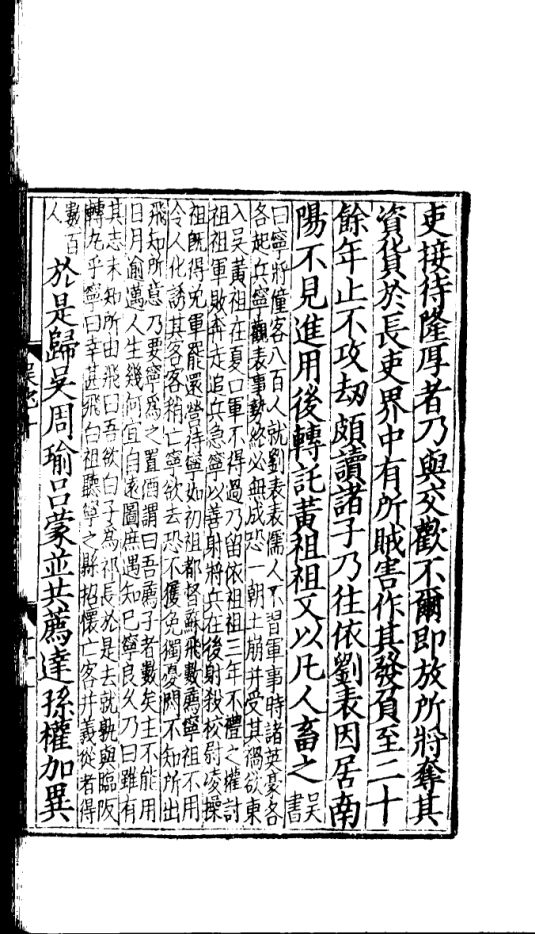 吏接待隆厚者乃與交歡不爾即放所將奪其
資貨於長吏界中有所賊害作其發負至二十
餘年止不攻劫頗讀諸子乃往依劉表因居南
陽不見進用後轉託黃祖祖又以凡人畜之
吳書
曰寧將僮客八百人就劉表表儒人不習軍事時諸英豪各
各起兵寧觀表事勢終必無成恐一朝土崩并受其禍欲東
入吳黃祖在夏口軍不得過乃留依祖祖三年不禮之權討
祖祖軍敗奔走追兵急寧以善射將兵在後射殺校尉凌操
祖旣得免軍罷還營待寧如初祖都督蘇飛數薦寧祖不用
令人化誘其客客稍亡寧欲去恐不獲免獨憂悶不知所出
飛知所意乃要寧爲之置酒謂曰吾薦子者數矣主不能用
日月逾邁人生幾何宜自遠圖庶遇知己寧良久乃曰雖有
其志未知所由飛曰吾欲白子爲長於是去就孰與臨阪
轉丸乎寧曰幸甚飛白祖聽寧之縣招懷亡客并義從者得
數百
人
於是歸吳周瑜呂蒙並共薦達孫權加異